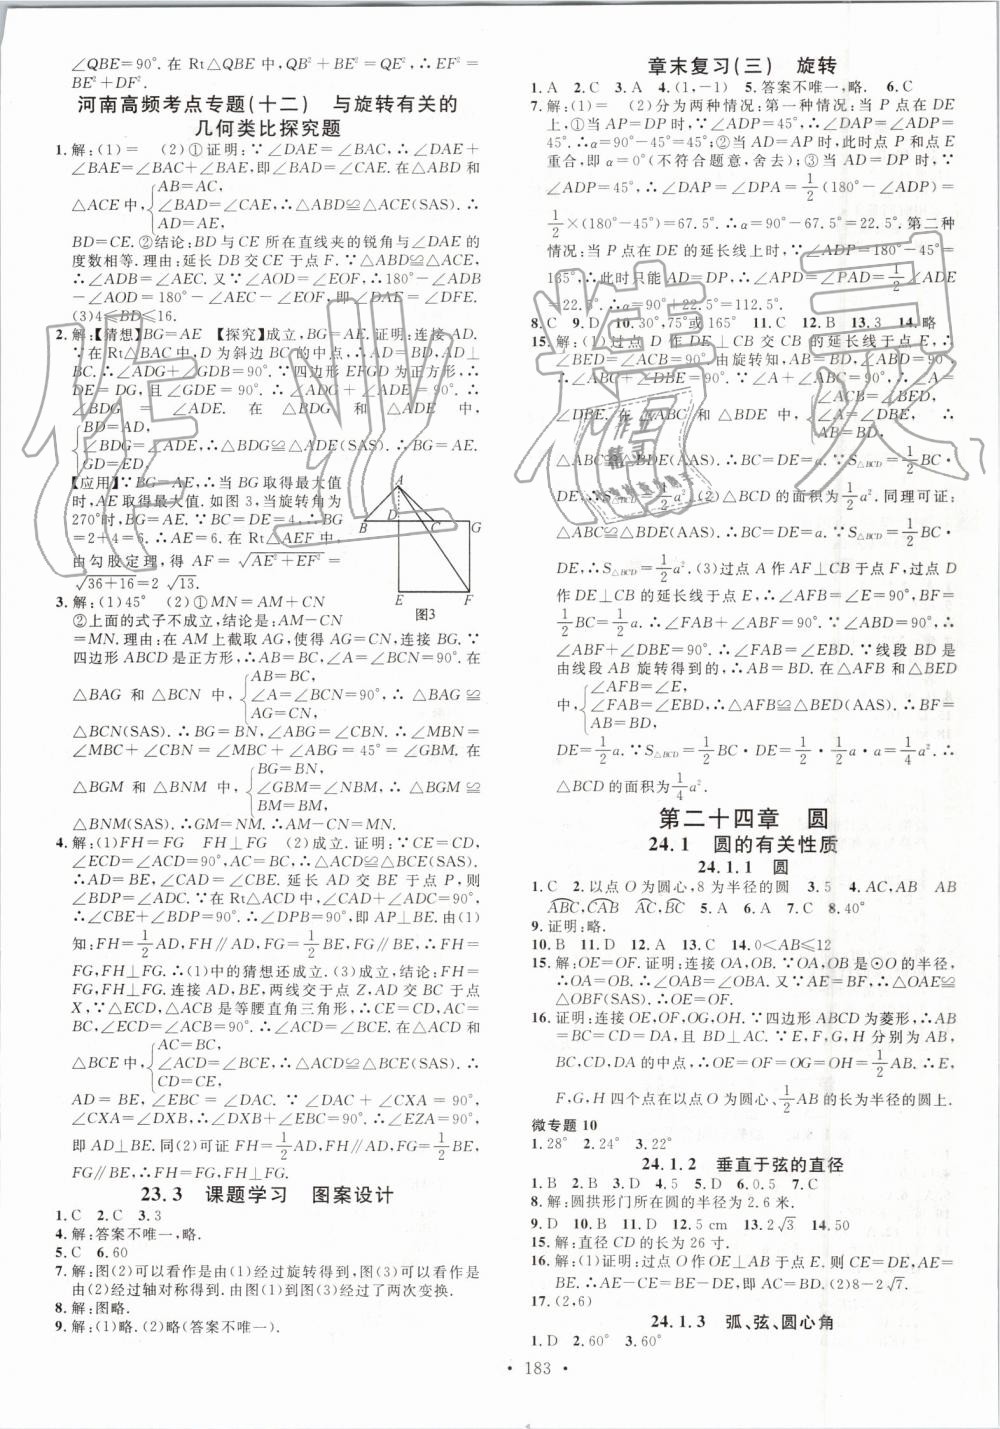 ∠QBE=90°. 在 Rt△QBE 中,QB²+BE²=QE²,∴EF²=
BE²+DF².
河南高频考点专题(十二) 与旋转有关的
几何类比探究题
1. 解:(1)= (2)①证明:∵∠DAE=∠BAC,∴∠DAE+
∠BAE=∠BAC+∠BAE,即∠BAD=∠CAE. 在△ABD 和
AB=AC,
△ACE 中, ∠BAD=∠CAE,∴△ABD≌△ACE(SAS). ∴
AD=AE,
BD=CE. ②结论:BD 与 CE 所在直线夹的锐角与∠DAE 的
度数相等. 理由:延长 DB 交 CE 于点 F. ∵△ABD≌△ACE,
∴∠ADB=∠AEC. 又∵∠AOD=∠EOF,∴180°−∠ADB
−∠AOD=180°−∠AEC−∠EOF,即∠DAE=∠DFE.
(3)4≤BD≤16.
2. 解:【猜想】BG=AE 【探究】成立,BG=AE. 证明:连接 AD.
∵在 Rt△BAC 中,D 为斜边 BC 的中点,∴AD=BD,AD⊥
BC. ∴∠ADG+∠GDB=90°. ∵四边形 EFGD 为正方形,∴
DE=DG,且∠GDE=90°. ∴∠ADG+∠ADE=90°. ∴
∠BDG=∠ADE. 在△BDG 和△ADE 中,
BD=AD,
∠BDG=∠ADE,∴△BDG≌△ADE(SAS). ∴BG=AE.
GD=ED,
【应用】∵BG=AE,∴当 BG 取得最大
值时,AE 取得最大值. 如图 3,当旋转角为
270°时,BG=AE. ∵BC=DE=4,∴BG
=2+4=6. ∴AE=6. 在 Rt△AEF 中,
由勾股定理,得 AF=√AE²+EF²=
√36+16=2√13.
A
B D C G
E F
图3
3. 解:(1)45° (2)①MN=AM+CN
②上面的式子不成立,结论是:AM−CN
=MN. 理由:在 AM 上截取 AG,使得 AG=CN,连接 BG. ∵
四边形 ABCD 是正方形,∴∠A=∠BCN=90°,AB=BC. 在
AB=BC,
△BAG 和△BCN 中, ∠A=∠BCN=90°,∴△BAG≌
AG=CN,
△BCN(SAS). ∴BG=BN,∠ABG=∠CBN. ∴∠MBN=
∠MBC+∠CBN=∠MBC+∠ABG=45°=∠GBM. 在
BG=BN,
△BGM 和△BNM 中, ∠GBM=∠NBM,∴△BGM≌
BM=BM,
△BNM(SAS). ∴GM=NM. ∴MN=AM−CN.
4. 解:(1)FH=FG FH⊥FG (2)成立. 证明:∵CE=CD,
∠ECD=∠ACD=90°,AC=BC,∴△ACD≌△BCE(SAS).
∴AD=BE,∠CAD=∠CBE. 延长 AD 交 BE 于点 P,则
∠BDP=∠ADC. ∵在 Rt△ACD 中,∠CAD+∠ADC=
90°,∴∠CBE+∠BDP=90°. ∴∠DPB=90°,即AP⊥BE. 由(1)
知:FH=1/2AD,FH∥AD,FG=1/2BE,FG∥BE,∴FH=
FG,FH⊥FG. ∴(1)中的猜想还成立. (3)成立,结论:FH=
FG,FH⊥FG. ∴连接AD,BE,两线交于点 Z,AD 交 BC 于点
X,∵△ECD,△ACB 是等腰直角三角形,∴CE=CD,AC=
BC,∠ECD=∠ACB=90°. ∴∠ACD=∠BCE. 在△ACD 和
AC=BC,
△BCE 中, ∠ACD=∠BCE,∴△ACD≌△BCE(SAS). ∴
CD=CE,
AD=BE,∠EBC=∠DAC. ∵∠DAC+∠CXA=90°,
∠CXA=∠DXB,∴∠DXB+∠EBC=90°. ∴∠EZA=90°,
即 AD⊥BE. 同(2)可证 FH=1/2AD,FH∥AD,FG=1/2BE,
FG∥BE,∴FH=FG,FH⊥FG.
23.3 课题学习 图案设计
1. C 2. C 3. 3
4. 解:答案不唯一,略.
5. C 6. 60
7. 解:图(2)可以看作是由(1)经过旋转得到,图(3)可以看作是
由(2)经过轴对称得到. 由图(1)到图(3)经过了两次变换.
8. 解:图略.
9. 解:(1)略. (2)略(答案不唯一).
章末复习(三) 旋转
1. A 2. C 3. A 4. (1,−1) 5. 答案不唯一,略. 6. C
7. 解:(1)= (2)分为两种情况:第一种情况:当 P 点在 DE 上
时,①当 AP=PD 时,∵∠ADP=45°,∴∠DAP=∠ADP=
45°. ∴α=90°−45°=45°;②当 AD=AP时,此时点 P 和点 E
重合,即 α=0°(不符合题意,舍去);③当 AD=DP 时,∵
∠ADP=45°,∴∠DAP=∠DPA=1/2(180°−∠ADP)=
1/2×(180°−45°)=67.5°. ∴α=90°−67.5°=22.5°. 第二种
情况:当 P 点在 DE 的延长线上时,∵∠ADP=180°−45°=
135°,∴此时只能 AD=DP,∴∠APD=∠PAD=1/2∠ADE
=22.5°. ∴α=90°+22.5°=112.5°.
8. C 9. D 10. 30°,75°或 165° 11. B 12. C 13. 3 14. 略
15. 解:(1)过点 D 作 DE⊥CB 交 CB 的延长线于点 E,∴
∠BED=∠ACB=90°. 由旋转知,AB=BD,∠ABD=90°,
∴∠ABC+∠DBE=90°. ∵∠A+∠ABC=90°,∴∠A=
∠ACB=∠BED,
∠DBE. 在△ABC 和△BDE 中, ∠A=∠DBE, ∴
AB=BD,
△ABC≌△BDE(AAS). ∴BC=DE=a. ∵S△BCD=1/2BC·
DE,∴S△BCD=1/2a². (2)△BCD 的面积为1/2a². 同理可证:
△ABC≌△BDE(AAS),∴BC=DE=a. ∵S△BCD=1/2BC·
DE,∴S△BCD=1/2a². (3)过点 A作 AF⊥CB 于点 F,过点 D
作 DE⊥CB 的延长线于点 E,∴∠AFB=∠E=90°,BF=
1/2BC=1/2a. ∴∠FAB+∠ABF=90°. ∵∠ABD=90°,∴
∠ABF+∠DBE=90°. ∴∠FAB=∠EBD. ∵线段 BD 是
由线段 AB 旋转得到的,∴AB=BD. 在△AFB 和△BED
∠AFB=∠E,
中, ∠FAB=∠EBD,∴△AFB≌△BED(AAS). ∴BF=
AB=BD,
DE=1/2a. ∵S△BCD=1/2BC·DE=1/2·1/2a·a=1/4a². ∴
△BCD 的面积为1/4a².
第二十四章 圆
24.1 圆的有关性质
24.1.1 圆
1. C 2. 以点 O 为圆心,8 为半径的圆 3. 5 4. AC,AB AB
ABC,CAB AC,BC 5. A 6. A 7. C 8. 40°
9. 证明:略.
10. B 11. D 12. A 13. C 14. 0<AB≤12
15. 解:OE=OF. 证明:连接 OA,OB. ∵OA,OB 是⊙O 的半径,
∴OA=OB. ∴∠OAB=∠OBA. 又∵AE=BF,∴△OAE≌
△OBF(SAS). ∴OE=OF.
16. 证明:连接 OE,OF,OG,OH. ∵四边形 ABCD 为菱形,∴AB
=BC=CD=DA,且 BD⊥AC. ∵E,F,G,H 分别为 AB,
BC,CD,DA 的中点,∴OE=OF=OG=OH=1/2AB. ∴E,
F,G,H 四个点在以点 O 为圆心,1/2AB的长为半径的圆上.
微专题 10
1. 28° 2. 24° 3. 22°
24.1.2 垂直于弦的直径
1. B 2. B 3. D 4. C 5. D 6. 0.5 7. C
8. 解:圆拱形门所在圆的半径为 2.6 米.
9. D 10. B 11. D 12. 5 cm 13. 2√3 14. 50
15. 解:直径 CD 的长为 26 寸.
16. 解:(1)证明:过点 O 作 OE⊥AB 于点 E. 则 CE=DE,AE=
BE,∴AE−CE=BE−DE,即AC=BD. (2)8−2√7.
17. (2,6)
24.1.3 弧、弦、圆心角
1. D 2. 60° 3. 60°
· 183 ·
作业精灵
作业
精灵